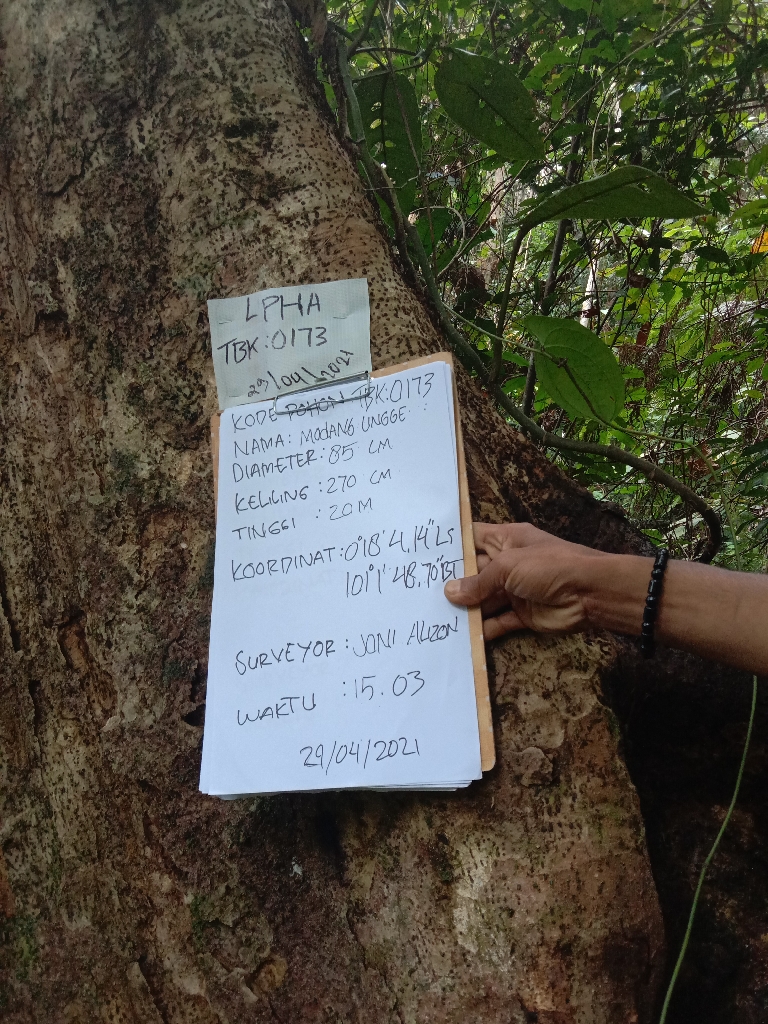 LPHA
TBK:0173
29/04/2021
KODE POHON TBK:0173
NAMA: MODANG UNGGE
DIAMETER: 85 CM
KELILING : 270 CM
TINGGI : 20 M
KOORDINAT: 0°18'4,14" LS
101°1'48,70" BT
SURVEYOR : JONI ALIZON
WAKTU : 15.03
29/04/2021